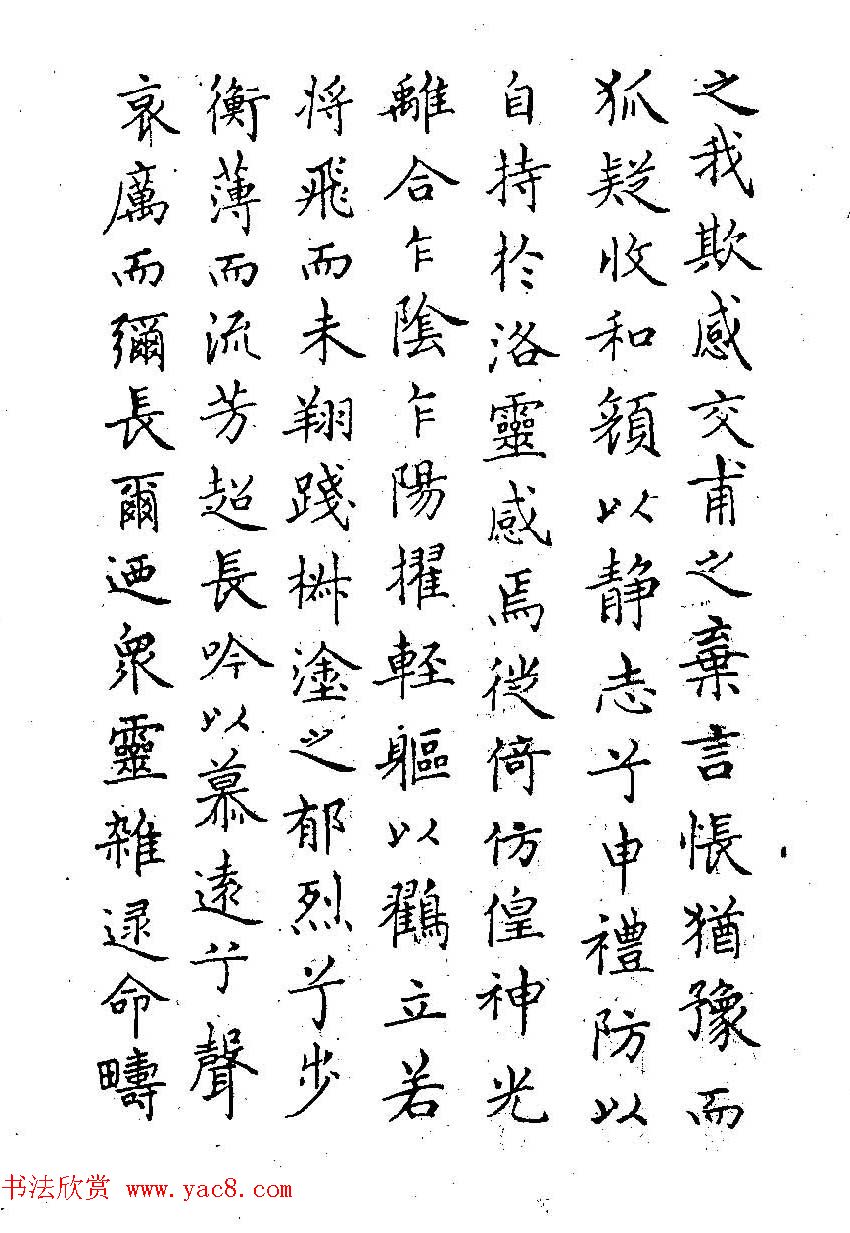 之我欺感交甫之棄言悵猶豫而
狐疑收和顔以静志兮申禮防以
自持於洛靈感焉徙倚仿偟神光
離合乍陰乍陽擢輕軀以鸛立若
将飛而未翔踐椒塗之郁烈兮步
衡薄而流芳超長吟以慕遠兮聲
哀厲而彌長爾迺衆靈雜遝命疇
书法欣赏 www.yac8.com